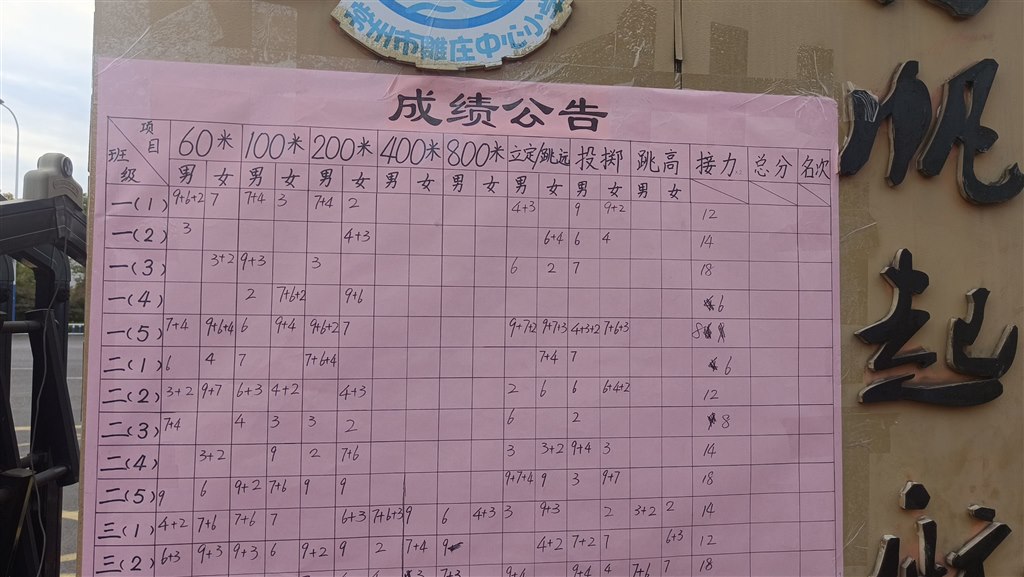 常州市雕庄中心小学
成绩公告
项目 班级 60米 100米 200米 400米 800米 立定跳远 投掷 跳高 接力 总分 名次
男 女 男 女 男 女 男 女 男 女 男 女 男 女 男 女
一(1) 9+6+2 7 7+4 3 7+4 2 4+3 9 9+2 12
一(2) 3 4+3 6+4 6 4 14
一(3) 3+2 9+3 3 6 2 7 18
一(4) 2 7+6+2 9+6 6
一(5) 7+4 9+6+4 6 9+4 9+6+2 7 9+7+2 9+7+3 4+3+2 7+6+3 8
二(1) 6 4 7 7+6+4 7+4 7 6
二(2) 3+2 9+7 6+3 4+2 4+3 2 6 6 6+4+2 12
二(3) 7+4 4 3 3 2 6 2 8
二(4) 3+2 9 2 7+6 3 3+2 9+4 3 14
二(5) 9 6 9+2 7+6 9 9 9+7+4 9 3 9+7 18
三(1) 4+2 7+6 7+6 7 6+3 7+6+3 9 6 4+3 3 9+3 2 3+2 2 14
三(2) 6+3 9+3 9+3 6 9+2 9 2 7+4 9 4+2 7+2 7 6+3 12
3 7+3 9+4 9+4 4 7+6 7 18
帆
起